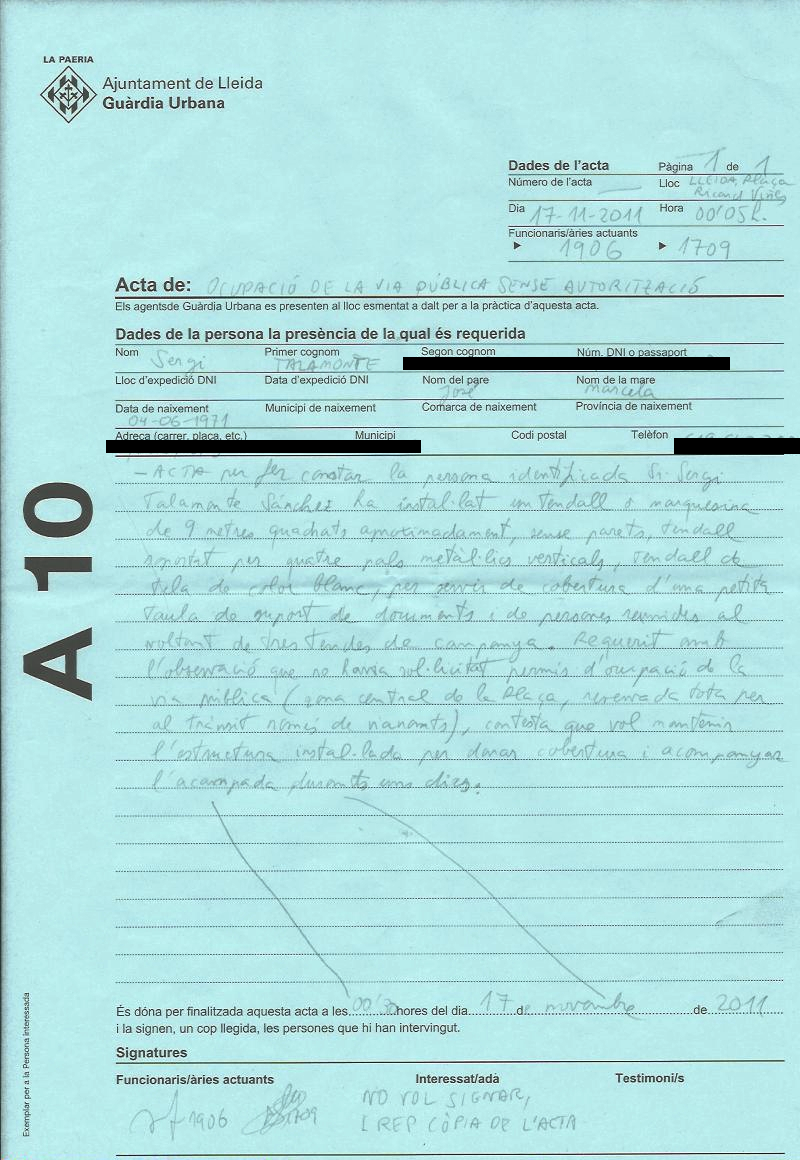 LA PAERIA
Ajuntament de Lleida
Guàrdia Urbana
Dades de l'acta Pàgina 1 de 1
Número de l'acta Lloc LLEIDA, Plaça
Ricard Viñes
Dia 17-11-2011 Hora 00'05h.
Funcionaris/àries actuants
1906 1709
Acta de: OCUPACIÓ DE LA VIA PÚBLICA SENSE AUTORITZACIÓ
Els agentsde Guàrdia Urbana es presenten al lloc esmentat a dalt per a la pràctica d'aquesta acta.
Dades de la persona la presència de la qual és requerida
Nom Sergi Primer cognom TALAMONTE Segon cognom Núm. DNI o passaport
Lloc d'expedició DNI Data d'expedició DNI Nom del pare José Nom de la mare Marcela
Data de naixement 04-06-1971 Municipi de naixement Comarca de naixement Província de naixement
Adreça (carrer, plaça, etc.) Municipi Codi postal Telèfon
- ACTA per fer constar la persona identificada Sr. Sergi
Talamonte Sánchez ha instal·lat un tendall o marquesina
de 9 metres quadrats aproximadament, sense parets, tendall
soportat per quatre pals metàl·lics verticals, tendall de
tela de color blanc, per servir de cobertura d'una petita
taula de suport de documents i de persones reunides al
voltant de tres tendes de campanya. Requerit amb
l'observació que no havia sol·licitat permís d'ocupació de la
via pública (zona central de la Plaça, reservada tota per
al trànsit només de vianants), contesta que vol mantenir
l'estructura instal·lada per donar cobertura i acompanyar
l'acampada durants uns dies.
A 10
És dóna per finalitzada aquesta acta a les 00'30 hores del dia 17 de novembre de 2011
i la signen, un cop llegida, les persones que hi han intervingut.
Signatures
Funcionaris/àries actuants Interessat/adà Testimoni/s
1906 1709 NO VOL SIGNAR,
I REP CÒPIA DE L'ACTA
Exemplar per a la Persona interessada